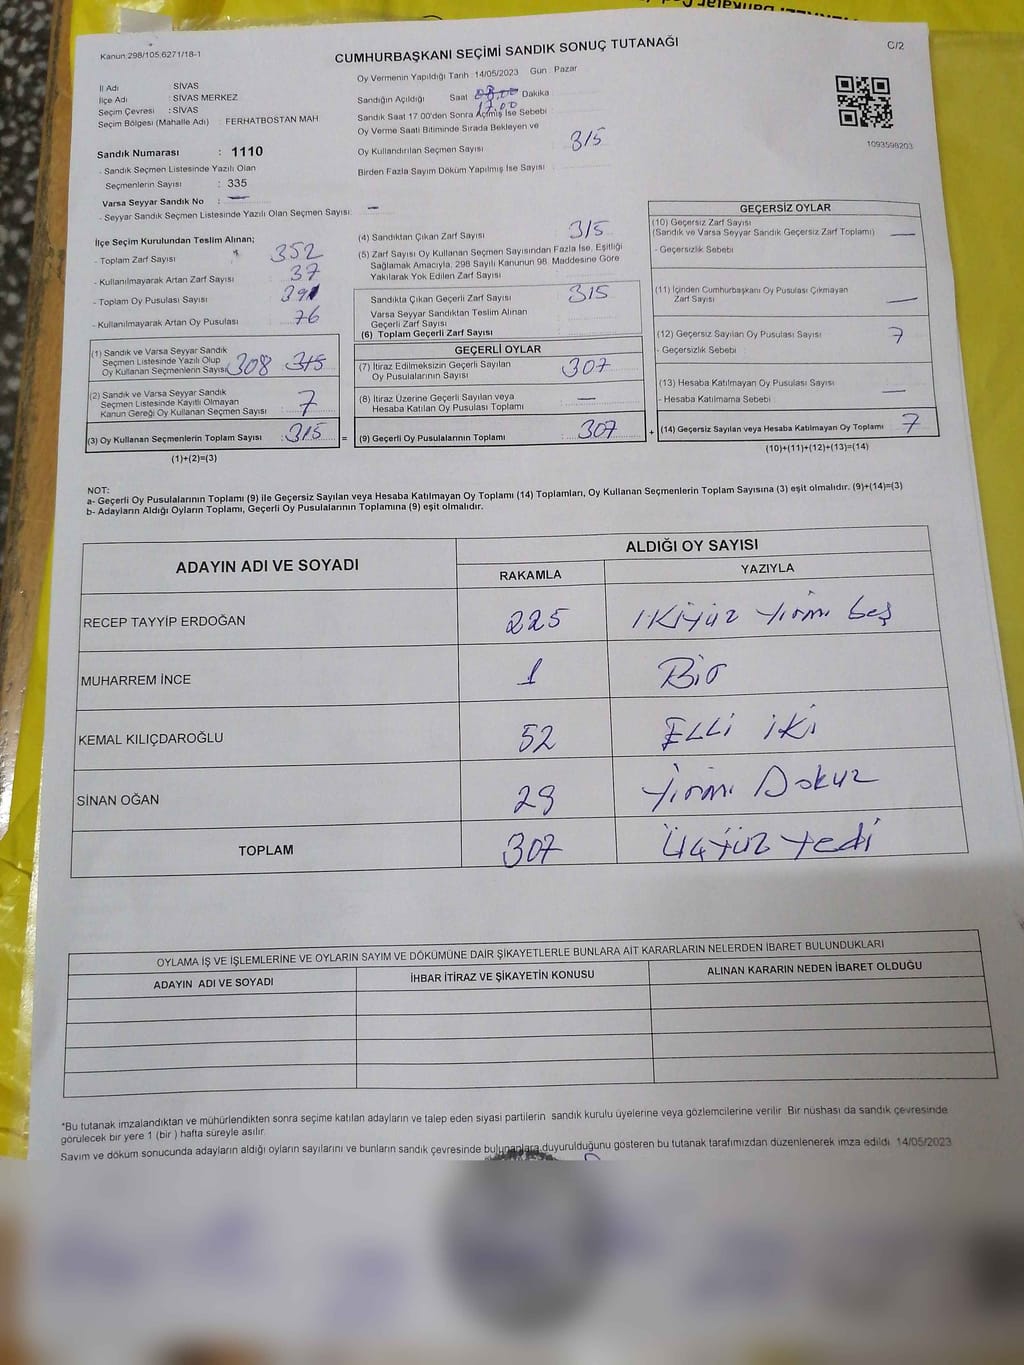 Kanun 298/105.6271/18-1
CUMHURBAŞKANI SEÇİMİ SANDIK SONUÇ TUTANAĞI
C/2
İl Adı : SİVAS
İlçe Adı : SİVAS MERKEZ
Seçim Çevresi : SİVAS
Seçim Bölgesi (Mahalle Adı) : FERHATBOSTAN MAH.
Sandık Numarası : 1110
- Sandık Seçmen Listesinde Yazılı Olan
Seçmenlerin Sayısı : 335
Varsa Seyyar Sandık No : —
- Seyyar Sandık Seçmen Listesinde Yazılı Olan Seçmen Sayısı : —
Oy Vermenin Yapıldığı Tarih : 14/05/2023 Gün : Pazar
Sandığın Açıldığı Saat 08.00 Dakika
17.00
Sandık Saat 17 00'den Sonra Açmış İse Sebebi :
Oy Verme Saati Bitiminde Sırada Bekleyen ve
Oy Kullandırılan Seçmen Sayısı : 315
Birden Fazla Sayım Döküm Yapılmış İse Sayısı :
1093598203
İlçe Seçim Kurulundan Teslim Alınan;
- Toplam Zarf Sayısı : 352
- Kullanılmayarak Artan Zarf Sayısı : 37
- Toplam Oy Pusulası Sayısı : 391
- Kullanılmayarak Artan Oy Pusulası : 76
(1) Sandık ve Varsa Seyyar Sandık
Seçmen Listesinde Yazılı Olup
Oy Kullanan Seçmenlerin Sayısı : 308 315
(2) Sandık ve Varsa Seyyar Sandık
Seçmen Listesinde Kayıtlı Olmayan
Kanun Gereği Oy Kullanan Seçmen Sayısı : 7
(3) Oy Kullanan Seçmenlerin Toplam Sayısı : 315 =
(1)+(2)=(3)
(4) Sandıktan Çıkan Zarf Sayısı : 315
(5) Zarf Sayısı Oy Kullanan Seçmen Sayısından Fazla İse, Eşitliği
Sağlamak Amacıyla, 298 Sayılı Kanunun 98. Maddesine Göre
Yakılarak Yok Edilen Zarf Sayısı :
Sandıkta Çıkan Geçerli Zarf Sayısı : 315
Varsa Seyyar Sandıktan Teslim Alınan
Geçerli Zarf Sayısı :
(6) Toplam Geçerli Zarf Sayısı :
GEÇERLİ OYLAR
(7) İtiraz Edilmeksizin Geçerli Sayılan
Oy Pusulalarının Sayısı : 307
(8) İtiraz Üzerine Geçerli Sayılan veya
Hesaba Katılan Oy Pusulası Toplamı : —
(9) Geçerli Oy Pusulalarının Toplamı : 307 +
GEÇERSİZ OYLAR
(10) Geçersiz Zarf Sayısı
(Sandık ve Varsa Seyyar Sandık Geçersiz Zarf Toplamı) —
- Geçersizlik Sebebi :
(11) İçinden Cumhurbaşkanı Oy Pusulası Çıkmayan
Zarf Sayısı : —
(12) Geçersiz Sayılan Oy Pusulası Sayısı : 7
- Geçersizlik Sebebi :
(13) Hesaba Katılmayan Oy Pusulası Sayısı : —
- Hesaba Katılmama Sebebi :
(14) Geçersiz Sayılan veya Hesaba Katılmayan Oy Toplamı : 7
(10)+(11)+(12)+(13)=(14)
NOT:
a- Geçerli Oy Pusulalarının Toplamı (9) ile Geçersiz Sayılan veya Hesaba Katılmayan Oy Toplamı (14) Toplamları, Oy Kullanan Seçmenlerin Toplam Sayısına (3) eşit olmalıdır. (9)+(14)=(3)
b- Adayların Aldığı Oyların Toplamı, Geçerli Oy Pusulalarının Toplamına (9) eşit olmalıdır.
ADAYIN ADI VE SOYADI
ALDIĞI OY SAYISI
RAKAMLA YAZIYLA
RECEP TAYYİP ERDOĞAN 225 İKİYÜZ Yirmi beş
MUHARREM İNCE 1 Bir
KEMAL KILIÇDAROĞLU 52 ELLİ İKİ
SİNAN OĞAN 29 Yirmi Dokuz
TOPLAM 307 ÜÇYÜZ Yedi
OYLAMA İŞ VE İŞLEMLERİNE VE OYLARIN SAYIM VE DÖKÜMÜNE DAİR ŞİKAYETLERLE BUNLARA AİT KARARLARIN NELERDEN İBARET BULUNDUKLARI
ADAYIN ADI VE SOYADI İHBAR İTİRAZ VE ŞİKAYETİN KONUSU ALINAN KARARIN NEDEN İBARET OLDUĞU
*Bu tutanak imzalandıktan ve mühürlendikten sonra seçime katılan adayların ve talep eden siyasi partilerin sandık kurulu üyelerine veya gözlemcilerine verilir. Bir nüshası da sandık çevresinde
görülecek bir yere 1 (bir ) hafta süreyle asılır.
Sayım ve döküm sonucunda adayların aldığı oyların sayılarını ve bunların sandık çevresinde bulunanlara duyurulduğunu gösteren bu tutanak tarafımızdan düzenlenerek imza edildi. 14/05/2023